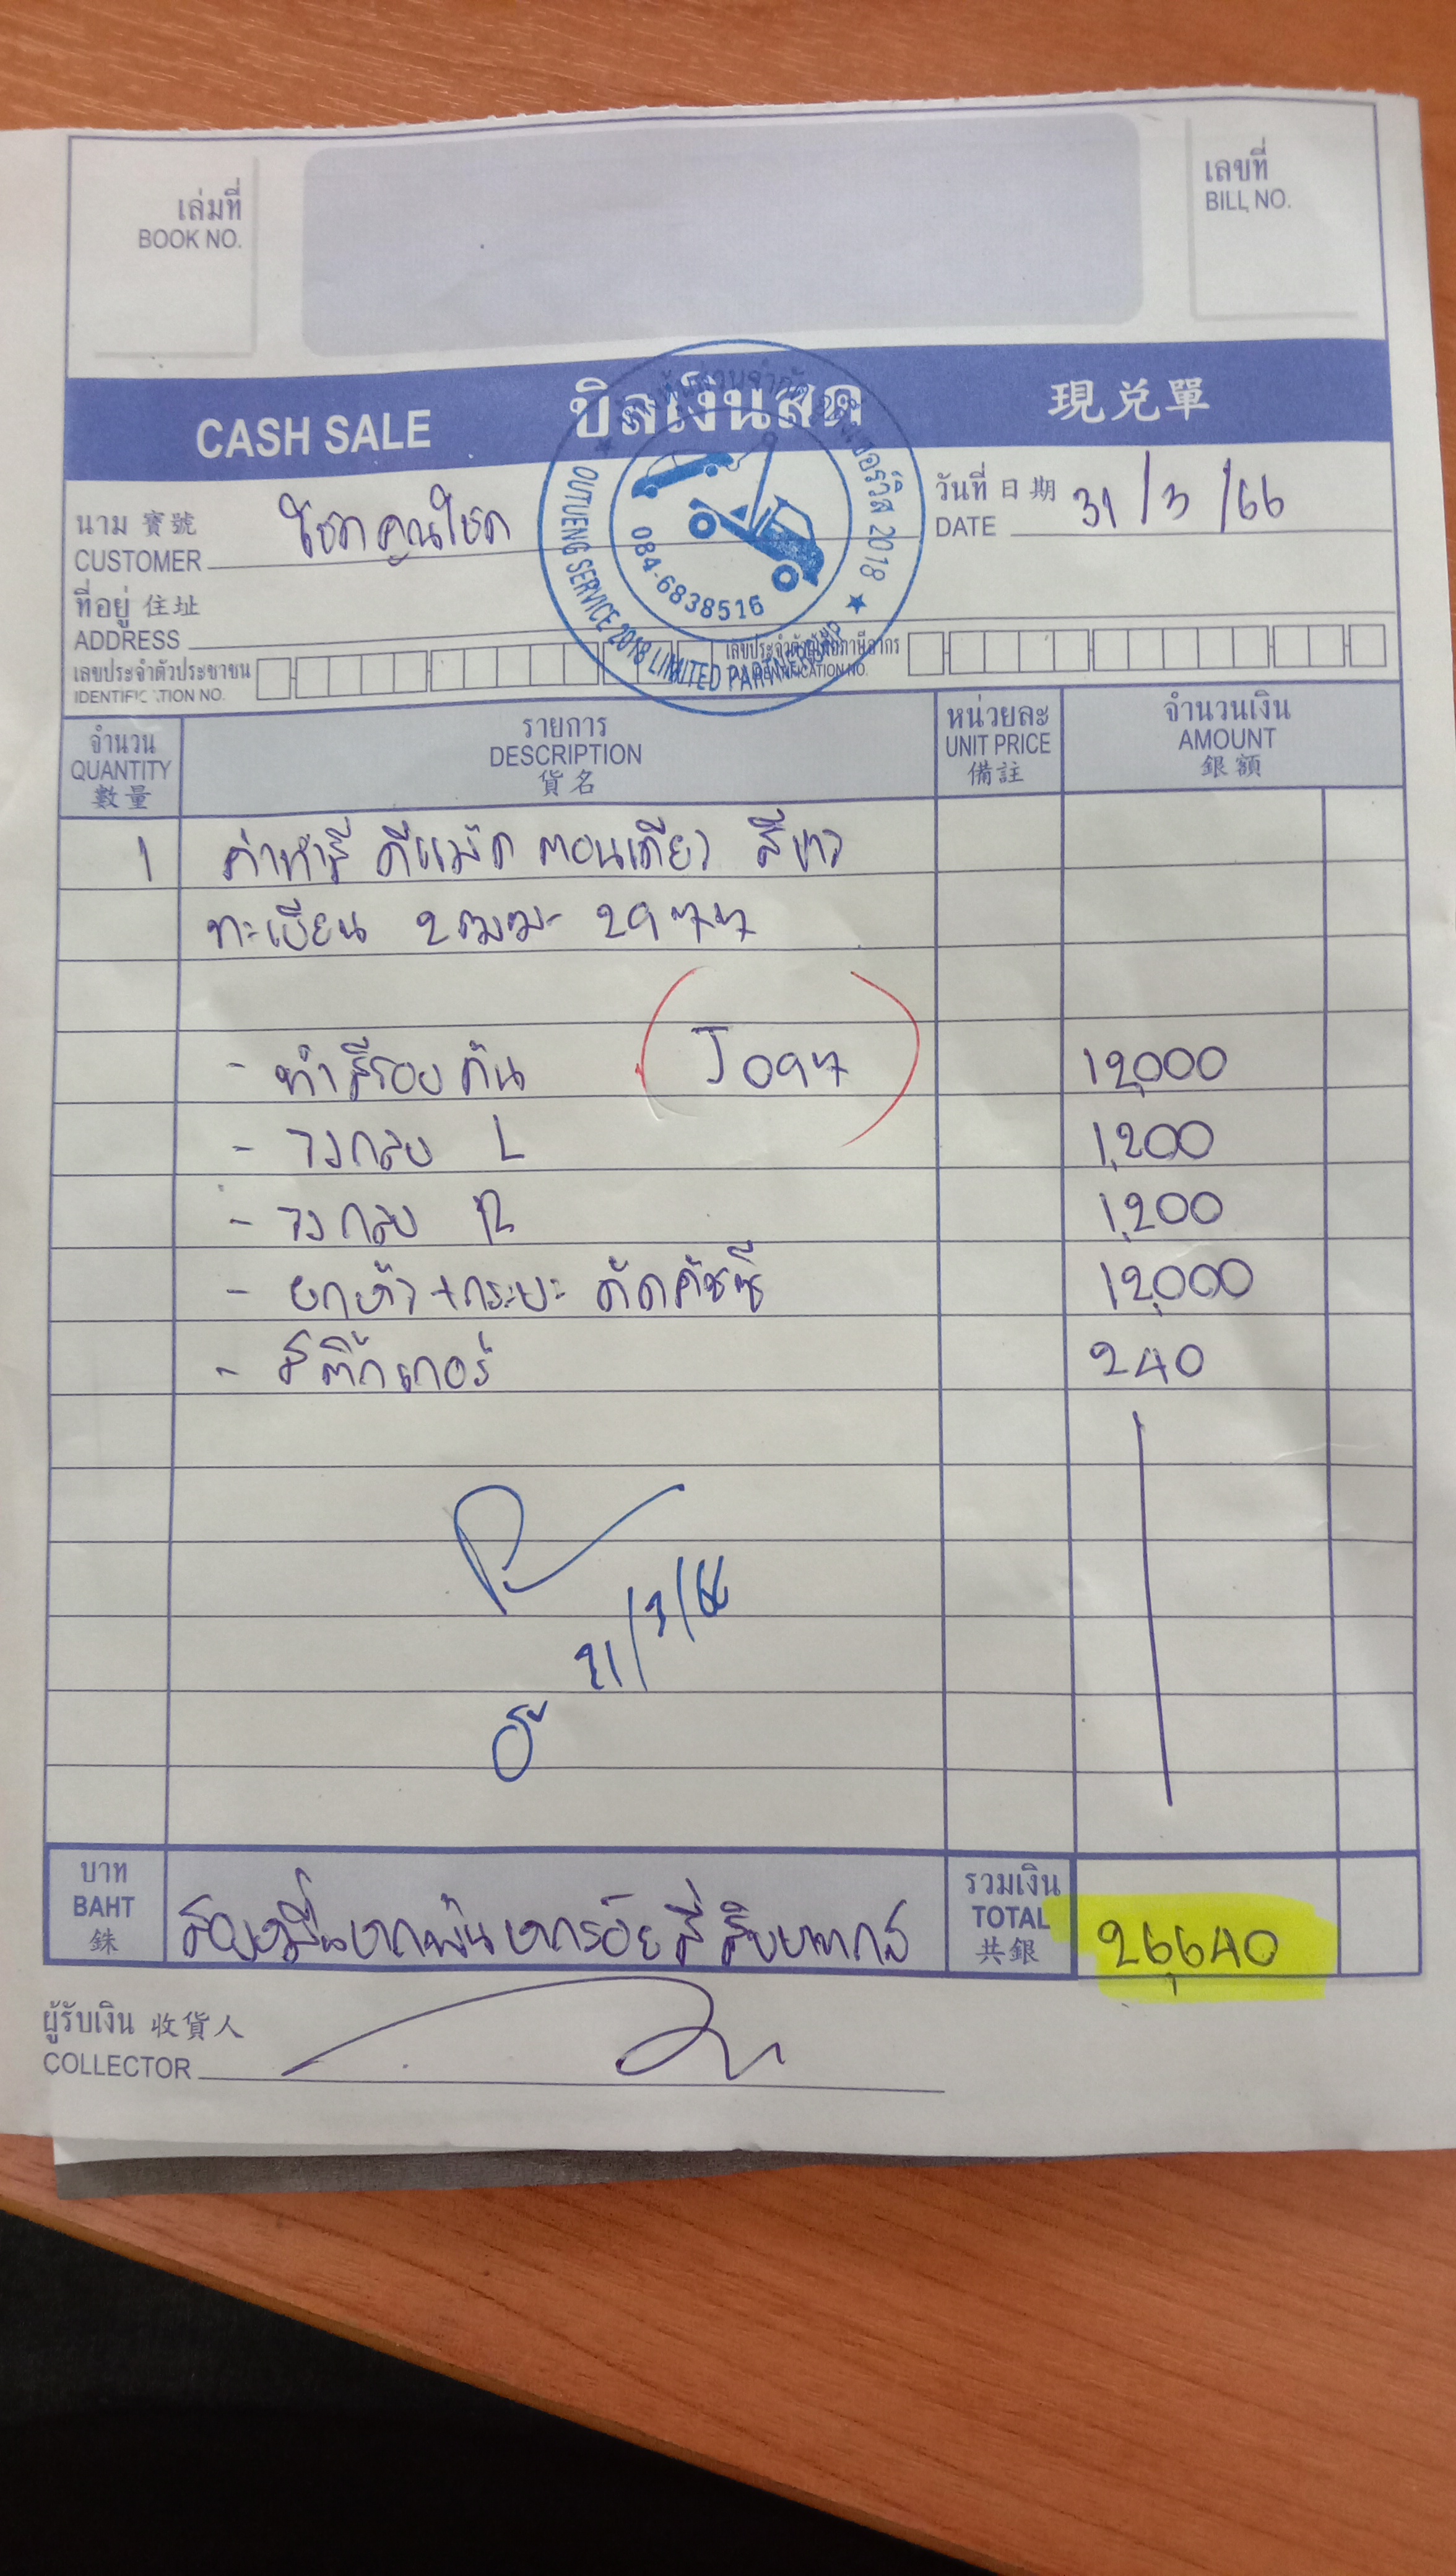 เล่มที่
BOOK NO.
เลขที่
BILL NO.
CASH SALE บิลเงินสด 現兑單
นาม 寶號
CUSTOMER โชคคูณโชค
วันที่ 日期
DATE 31/3/66
ที่อยู่ 住址
ADDRESS
เลขประจำตัวประชาชน
IDENTIFIC TION NO.
เลขประจำตัวผู้เสียภาษีอากร
IDENTIFICATION NO.
2018
OUTUENG SERVICE 2018 LIMITED PARTNERSHIP
084-6838516
จำนวน
QUANTITY
數量
รายการ
DESCRIPTION
貨名
หน่วยละ
UNIT PRICE
備註
จำนวนเงิน
AMOUNT
銀額
1 ค่าทำสี ดีแม็ค ตอนเดียว สีขาว
ทะเบียน 2977
- ทำสีรอบคัน (J097) 12,000
- วงกลบ L 1,200
- วงกลบ R 1,200
- ยกหัว+กระบะ ดัดคัชซี 12,000
- สติ๊กเกอร์ 240
31/3/66
บาท
BAHT
銖
สองหมื่นหกพันหกร้อยสี่สิบบาท
รวมเงิน
TOTAL
共銀
26,640
ผู้รับเงิน 收貨人
COLLECTOR